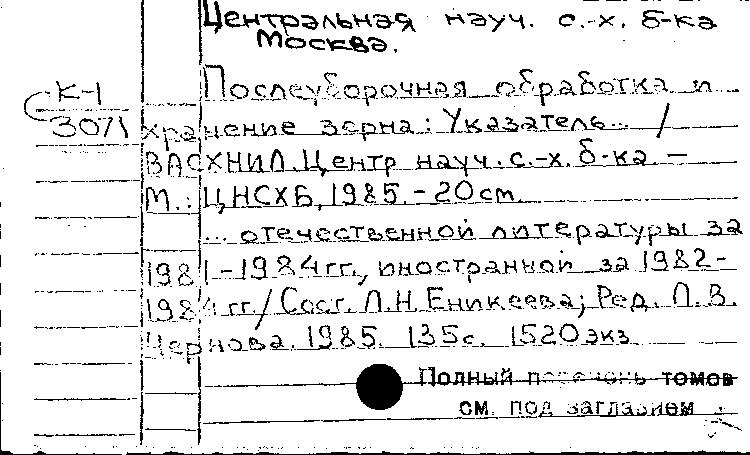 Центральная науч. с.-х. б-ка
Москва.
К-1
3071
Послеуборочная обработка и
хранение зерна: Указатель... /
ВАСХНИЛ. Центр науч. с.-х. б-ка. –
М.: ЦНСХБ, 1985. – 20 см.
... отечественной литературы за
1981–1984 гг., иностранной за 1982–
1984 гг / Сост. Л.Н. Еникеева; Ред. Л.В.
Чернова. 1985. 135 с. 1520 экз.
Полный перечень томов
см. под заглавием